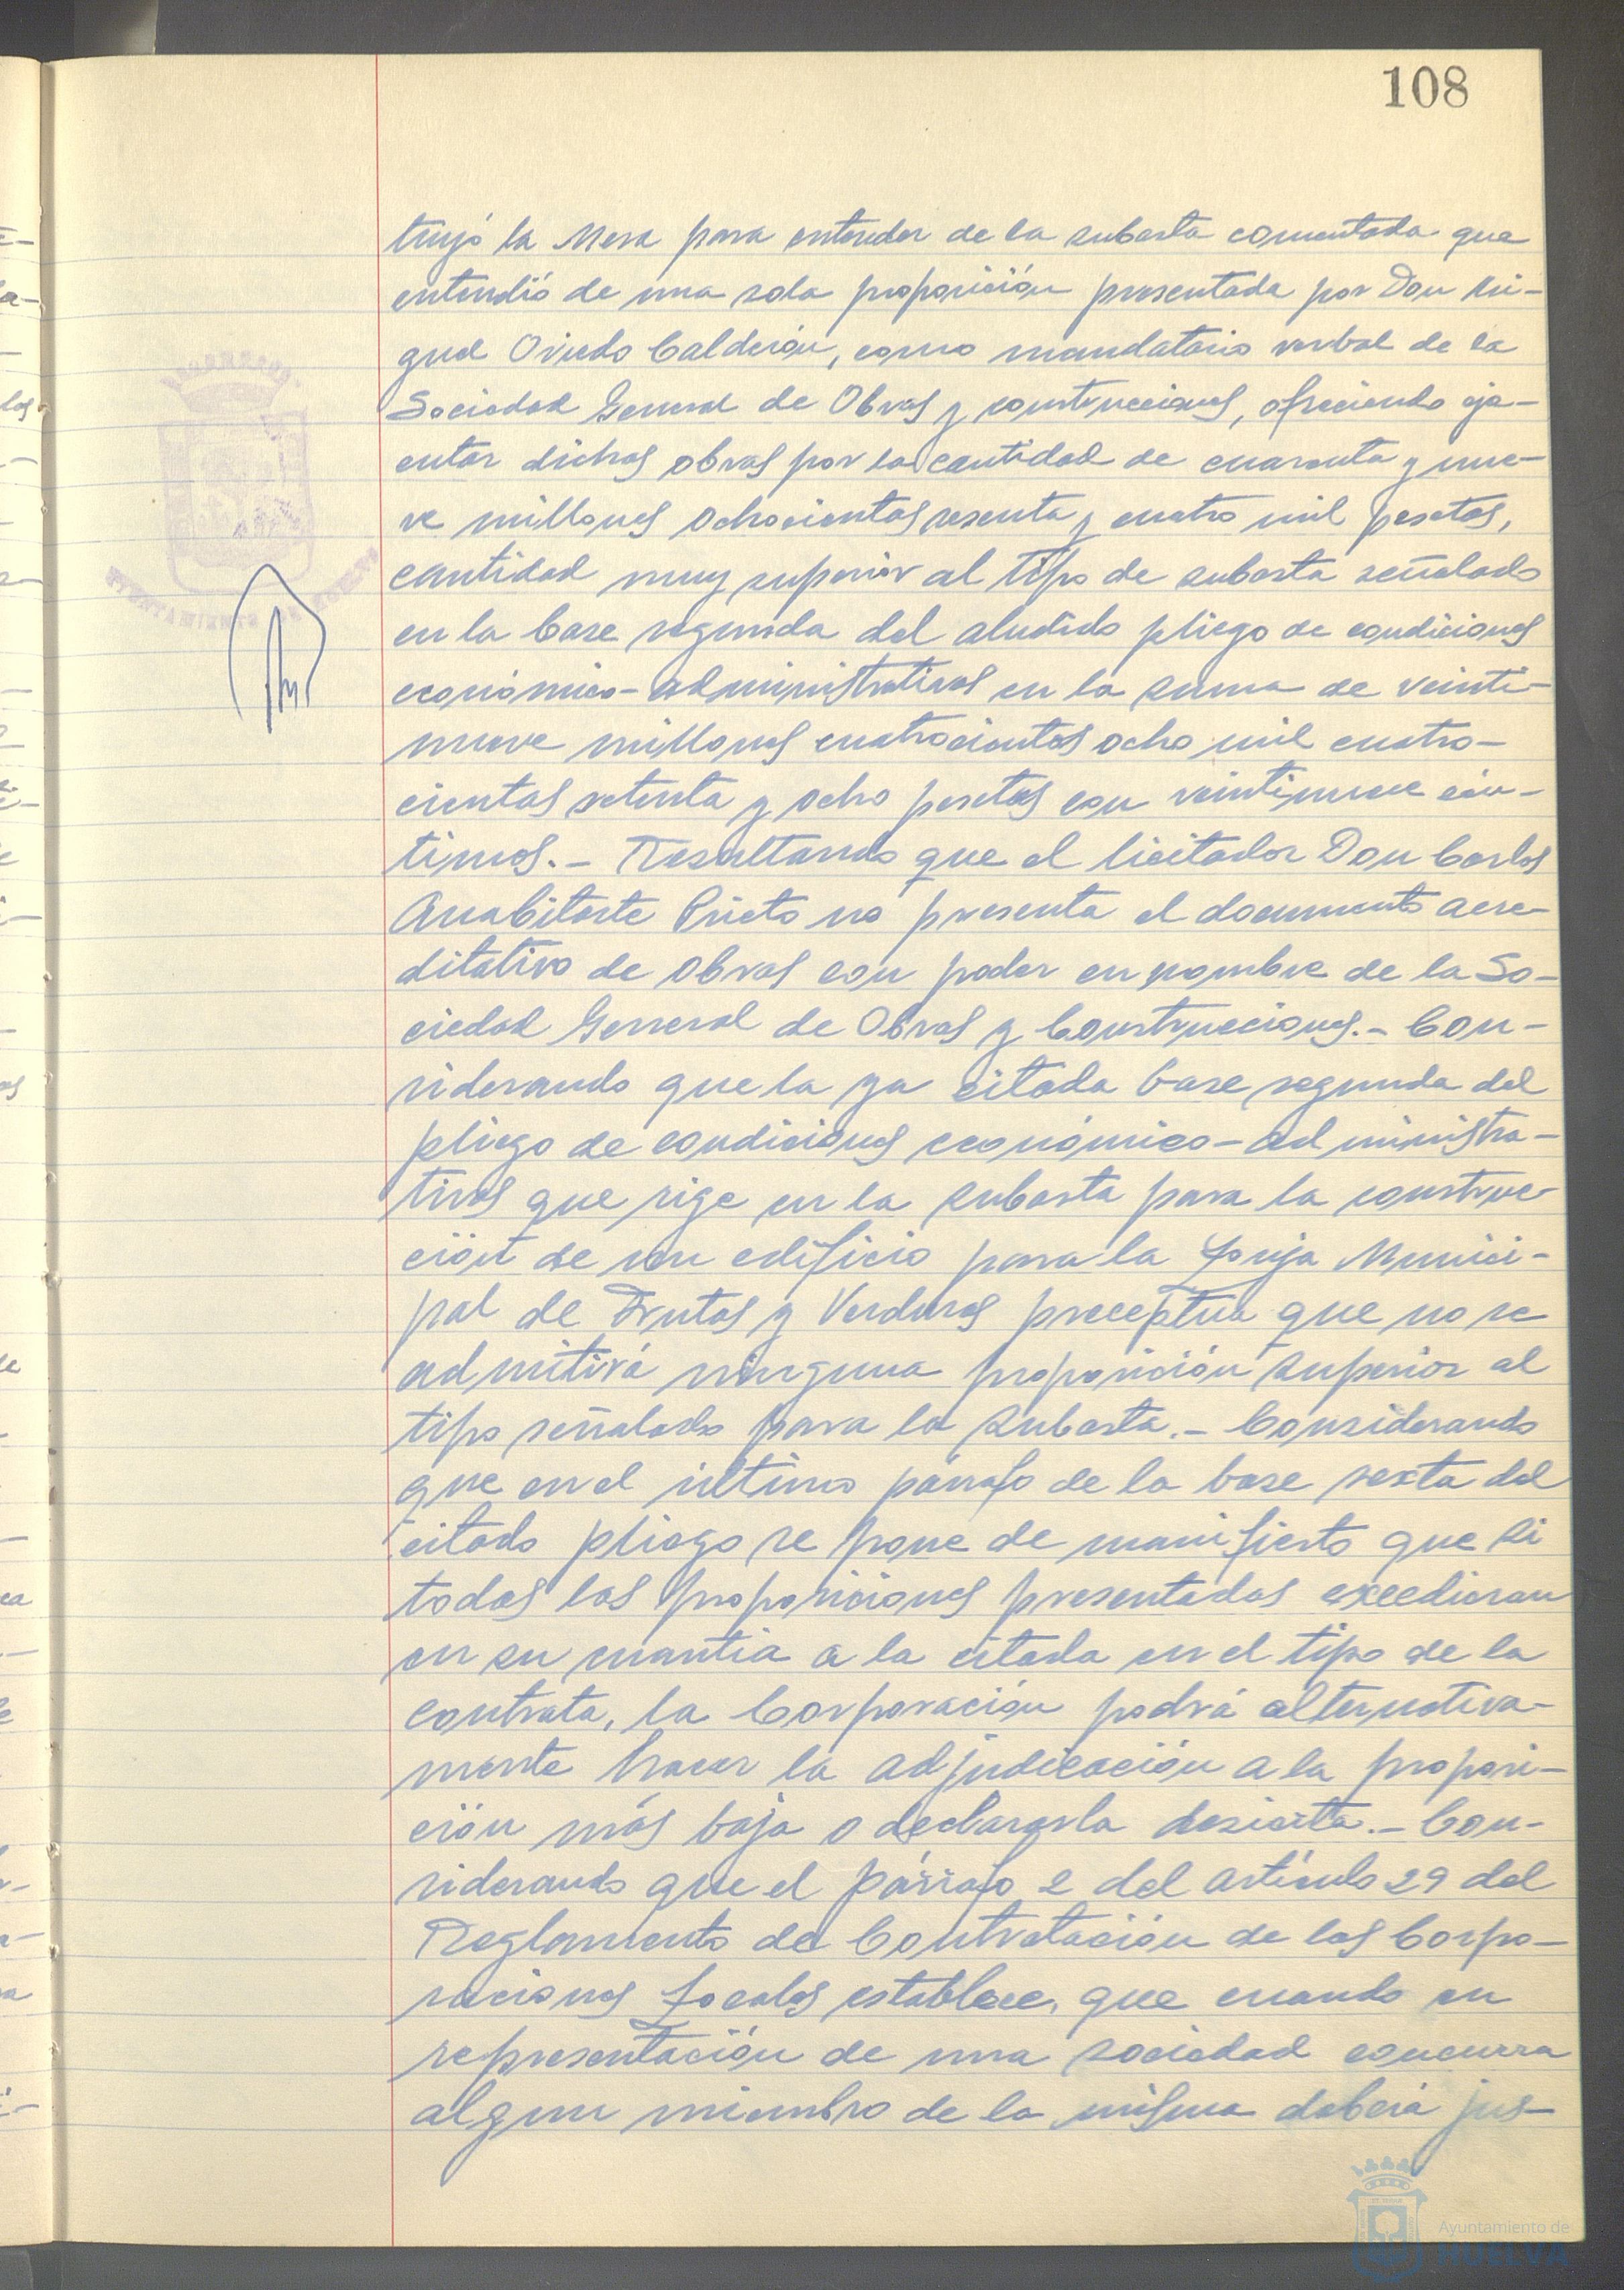 108
tuyó la Mesa para entender de la subasta comentada que
entendió de una sola proposición presentada por Don Mi-
guel Oviedo Calderón, como mandatario verbal de la
Sociedad General de Obras y construcciones, ofreciendo eje-
cutar dichas obras por la cantidad de cuarenta y nue-
ve millones ochocientas sesenta y cuatro mil pesetas,
cantidad muy superior al tipo de subasta señalado
en la base segunda del aludido pliego de condiciones
económico-administrativas en la suma de veinti-
nueve millones cuatrocientas ocho mil cuatro-
cientas setenta y ocho pesetas con veintinueve cén-
timos.- Resultando que el licitador Don Carlos
Anabitarte Prieto no presenta el documento acre-
ditativo de obras con poder en nombre de la So-
ciedad General de Obras y Construcciones.- Con-
siderando que la ya citada base segunda del
pliego de condiciones económico-administra-
tivas que rige en la subasta para la construc-
ción de un edificio para la Lonja Munici-
pal de Frutas y Verduras preceptua que no se
admitirá ninguna proposición superior al
tipo señalado para la subasta.- Considerando
que en el último párrafo de la base sexta del
citado pliego se pone de manifiesto que si
todas las proposiciones presentadas excedieran
en su cuantia a la citada en el tipo de la
contrata, la Corporación podrá alternativa-
mente hacer la adjudicación a la proposi-
ción más baja o declararla desierta.- Con-
siderando que el párrafo 2 del artículo 29 del
Reglamento de Contratación de las Corpo-
raciones Locales establece, que cuando en
representación de una sociedad concurra
algun miembro de la misma deberá jus-
AYUNTAMIENTO DE HUELVA
Ayuntamiento de
HUELVA